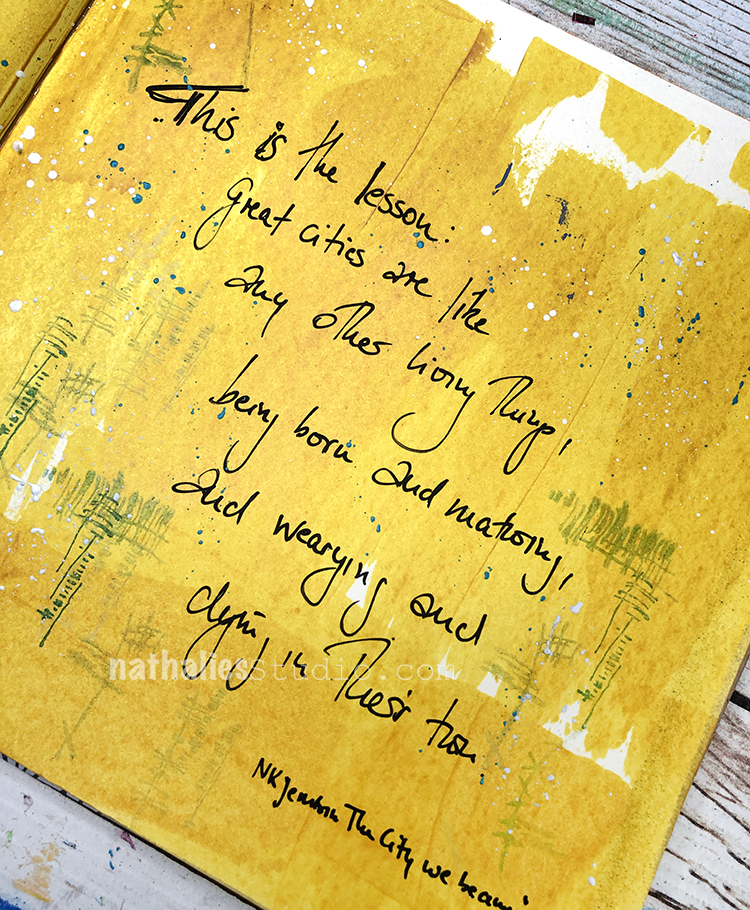 This is the lesson:
Great cities are like
any other living things,
being born and maturing,
and wearying and
dying in their turn.
nathaliesstudio.com
NK Jemisin The City we became